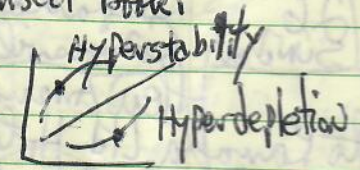 Hyperstability
Hyperdepletion